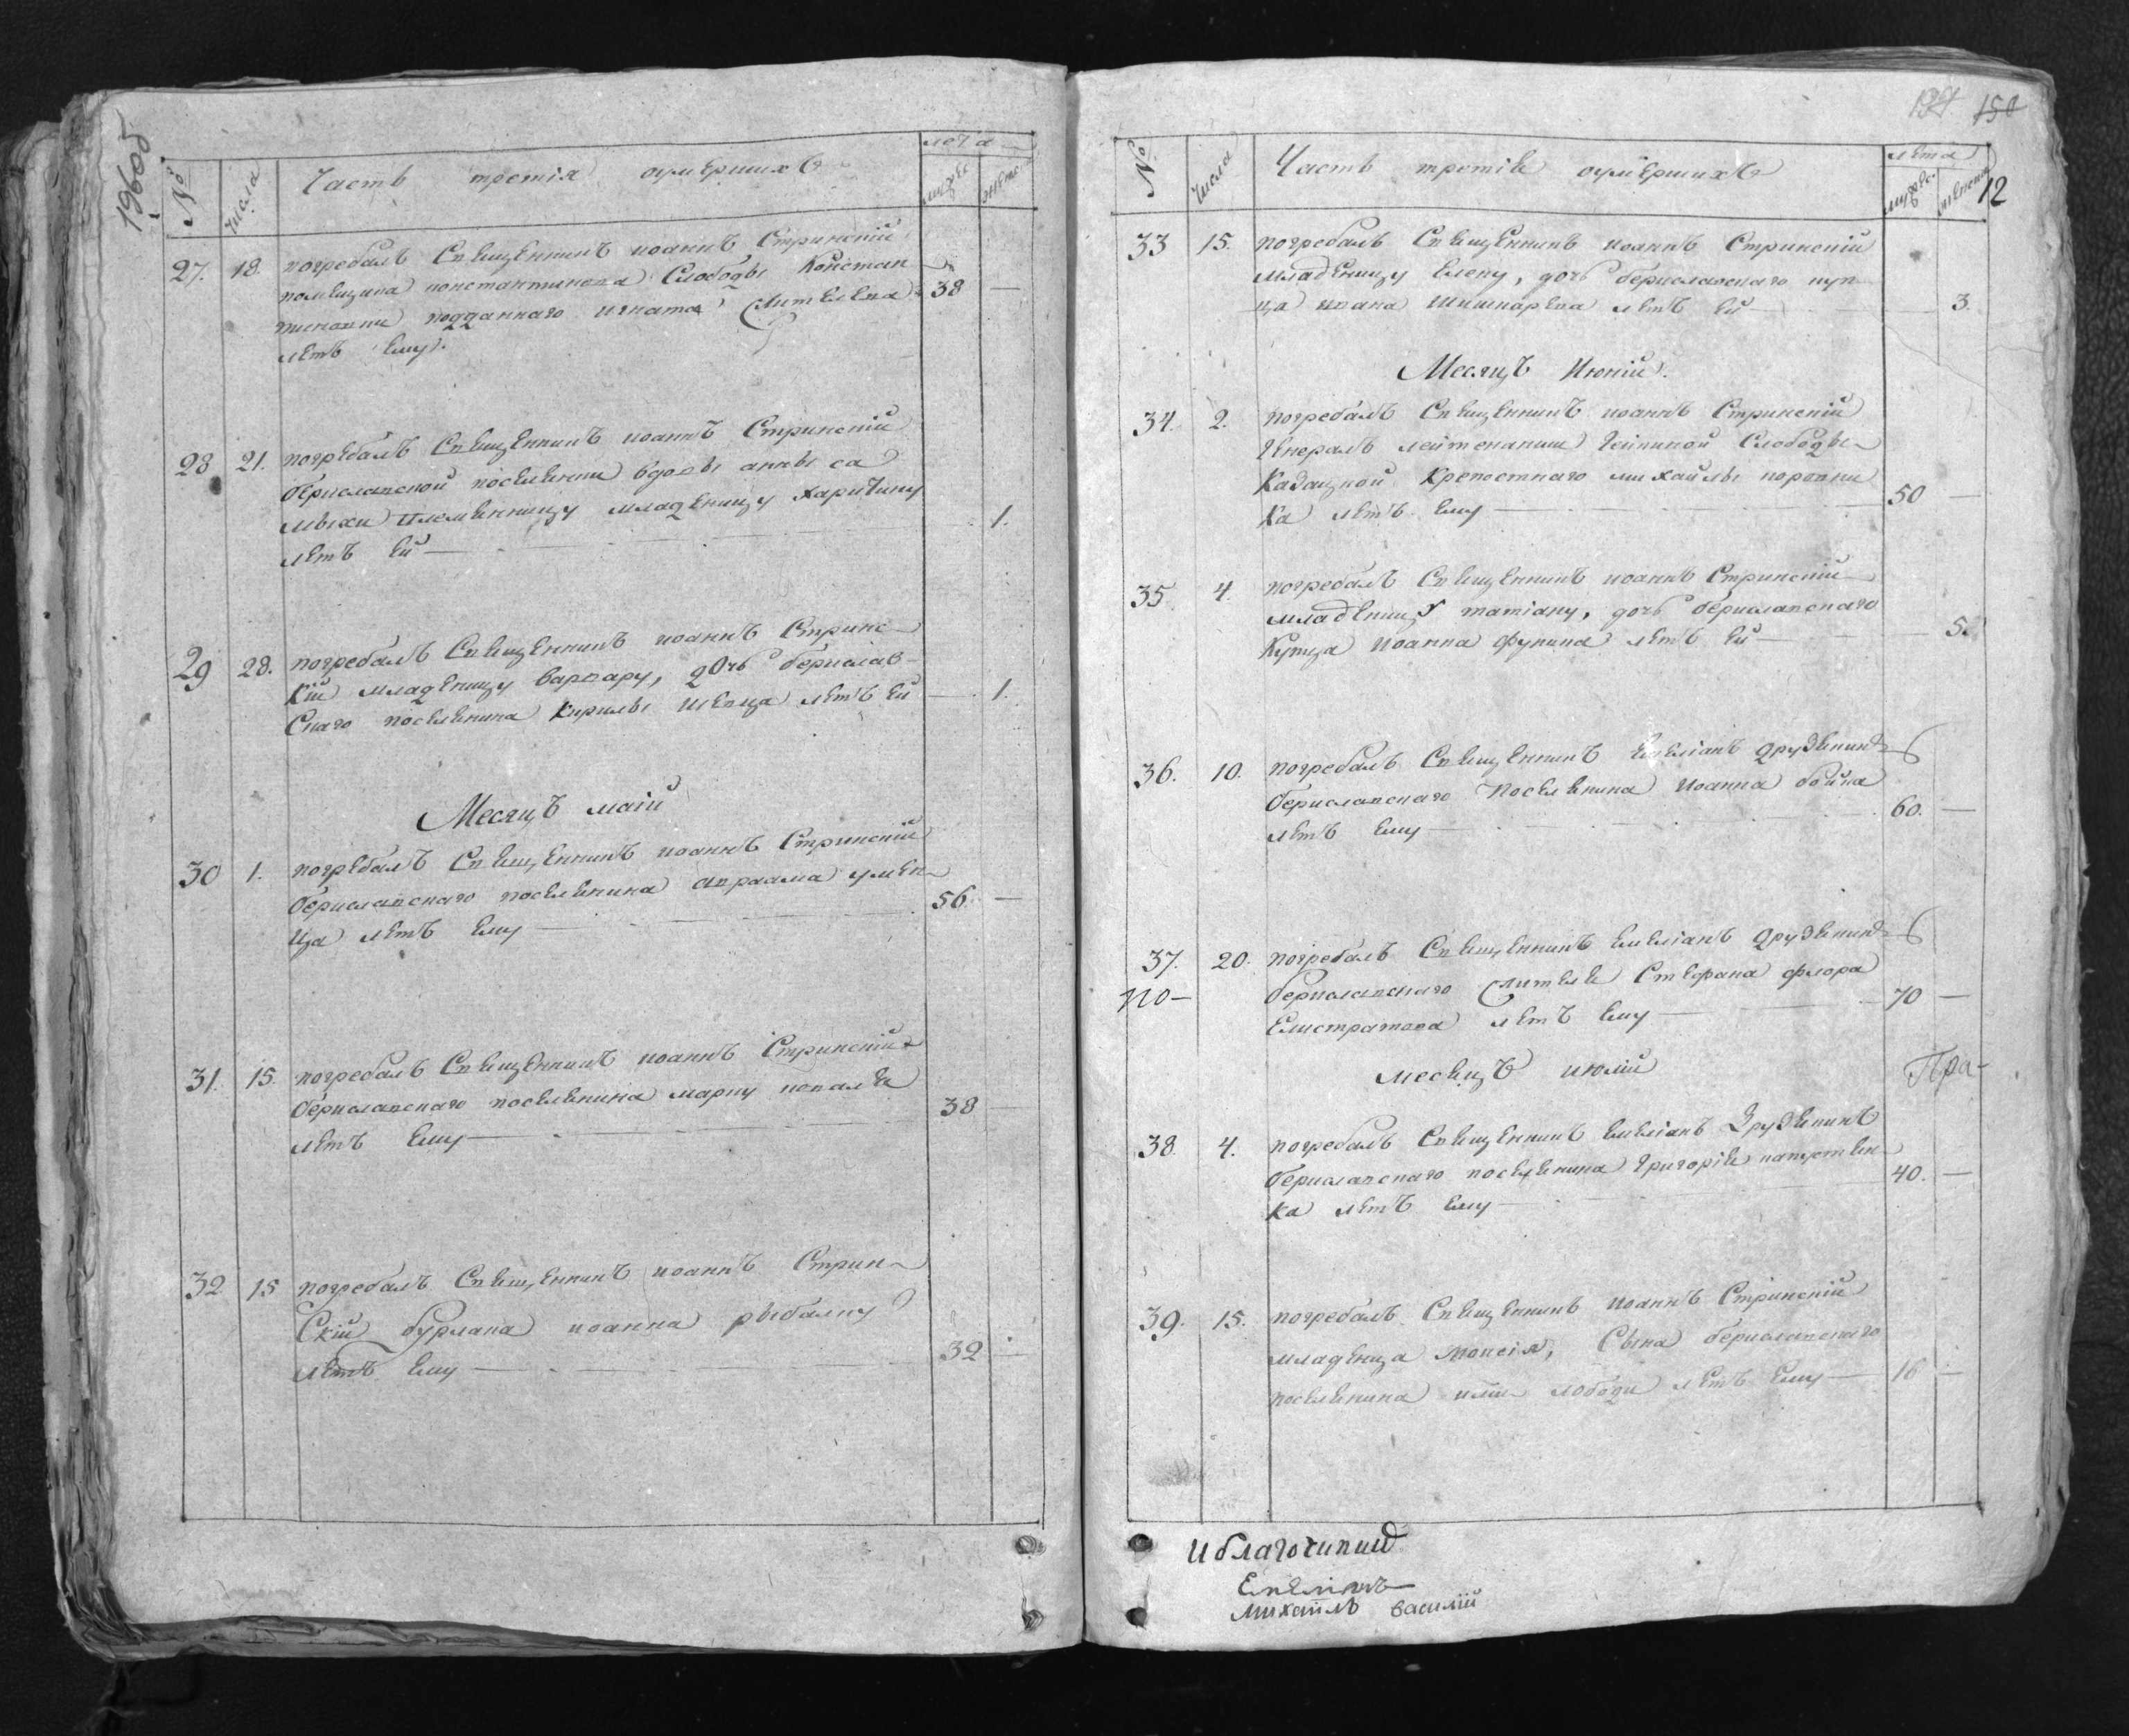 196об
№ числа Часть третія оумершихъ лета мужес женс
27. 18. погребалъ Священникъ иоаннъ Стринскій
помещика константинова Слободы Констан
тиновки подданнаго игната 38 —
летъ ему.
28 21. погребалъ Священникъ иоаннъ Стринскій
бериславской поселенки вдовы анны са
лыхи племенницу младеницу харитину
летъ ей — 1.
29 28. погребалъ Священникъ иоаннъ Стринс
кій младеницу варвару, дочь берислав
скаго поселенина кирилы шевца летъ ей — 1.
Месяцъ маій
30 1. погребалъ Священникъ иоаннъ Стринскій
бериславскаго поселенина авраама умен
ца летъ ему — 56. —
31. 15. погребалъ Священникъ иоаннъ Стринскій
бериславскаго поселенина марку коваля
летъ ему — 38 —
32 15 погребалъ Священникъ иоаннъ Стрин
Скій бурлака иоанна рыбалку
летъ ему — 32 —
150
№ числа Часть третія оумершихъ лета мужес. женска 12
33 15. погребалъ Священникъ иоаннъ Стринскій
младеницу елену, дочь бериславскаго куп
ца ивана шишкарева летъ ей — 3.
Месяцъ Июній.
34. 2. погребалъ Священникъ иоаннъ Стринскій
Генералъ лейтенанши Слободы
Казацкой крепостнаго михайлы коровни
ка летъ ему — 50 —
35. 4. погребалъ Священникъ иоаннъ Стринскій
младеницу татіану, дочь бериславскаго
купца иоанна фунина летъ ей — 5.
36. 10. погребалъ Священникъ емеліанъ друзекинъ
бериславскаго поселенина иоанна бойка
летъ ему — 60. —
37. 20. погребалъ Священникъ емеліанъ друзекинъ
по- бериславскаго жителя Стефана флора
Елистратова летъ ему — 70 —
месяцъ июлій
Пра-
38. 4. погребалъ Священникъ емеліанъ друзекинъ
бериславскаго поселенина григорія капустян
ка летъ ему — 40. —
39. 15. погребалъ Священникъ иоаннъ Стринскій
младенца моисія, Сына бериславскаго
поселенина илии лободы летъ ему — 16 —
и благочинид
Емеліанъ
михаилъ василій